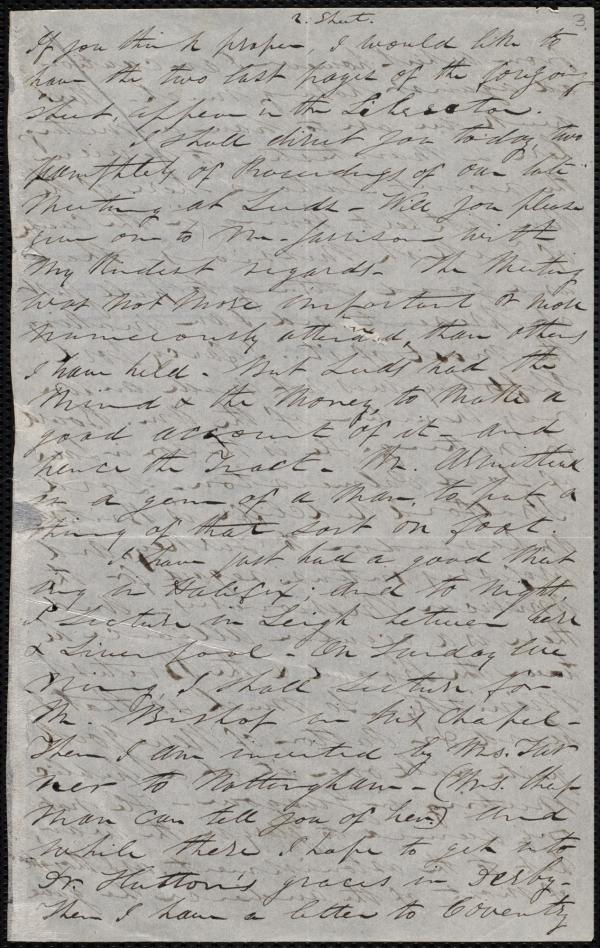 2. Sheet.
3
If you think proper, I would like to
have the two last pages of the foregoing
Sheet, appear in the Liberator.
I shall direct you today, two
pamphlets of Proceedings of our late
Meeting at Leeds - Will you please
give one to Mr. Garrison with
my kindest regards - The Meeting
was not more important or more
numerously attended, than others
I have held - But Leeds had the
Mind & the Money, to make a
good account of it - and
hence the Tract - Mr.
is a gem of a man, to put a
thing of that sort on foot.
I have just had a good Meet
ing in Halifax; and to night,
I Lecture in Leigh between here
& Liverpool - On Sunday Eve
ning, I shall Lecture for
Mr. Bishop in his Chapel -
Then I am invited by Mrs. Tur
ner to Nottingham - (Mrs. Chap-
man can tell you of her.) And
while there I hope to get into
Dr. Hutton's graces in Derby -
Then I have a letter to Coventry